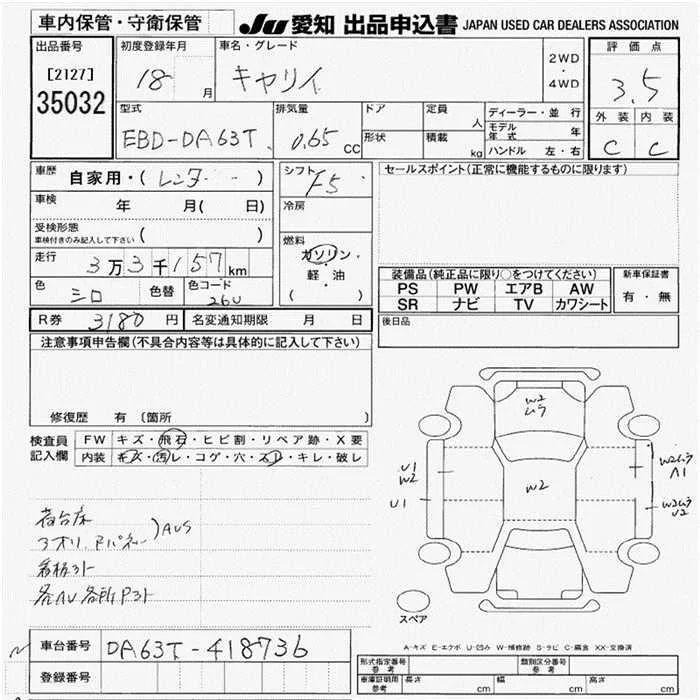 車内保管・守衛保管 JU 愛知 出品申込書 JAPAN USED CAR DEALERS ASSOCIATION
出品番号 初度登録年月 車名・グレード 評価点
[2127] 18 月 キャリイ 2WD・4WD 3.5
35032
型式 排気量 ドア 定員 人 ディーラー・並行 外装 内装
EBD-DA63T 0.65 cc 形状 積載 kg モデル年式 年 C C
ハンドル 左・右
車歴 自家用・(レンタ) シフト F5 セールスポイント(正常に機能するものに限ります)
車検 年 月( 日) 冷房
受検形態
車検付きのみ記入して下さい ( )
燃料 ガソリン・軽・油 ( )
走行 3万3千157km
装備品(純正品に限り○をつけてください) 新車保証書
色 シロ 色替 色コード 26U PS PW エアB AW 有・無
SR ナビ TV カワシート
R券 3180円 名変通知期限 月 日 後日品
注意事項申告欄(不具合内容等は具体的に記入して下さい)
修復歴 有 〔箇所
検査員 FW キズ・飛石・ヒビ割・リペア跡・X要
記入欄 内装 キズ・汚レ・コゲ・穴・スレ・キレ・破レ
W2 ムラ
U1 W2
U1
W2
W2ムラ A1
W2ムラ U2
荷台床
3オリ, Rパネル )AUS
看板ヨト
各AU各所Pヨト
スペア
A-キズ E-エクボ U-凹み W-補修跡 S-サビ C-腐食 XX-交換済
車台番号 DA63T-418736 型式指定番号 参考 類別区分番号 参考
登録番号 車庫証明用 参考 長さ cm 幅 cm 高さ cm